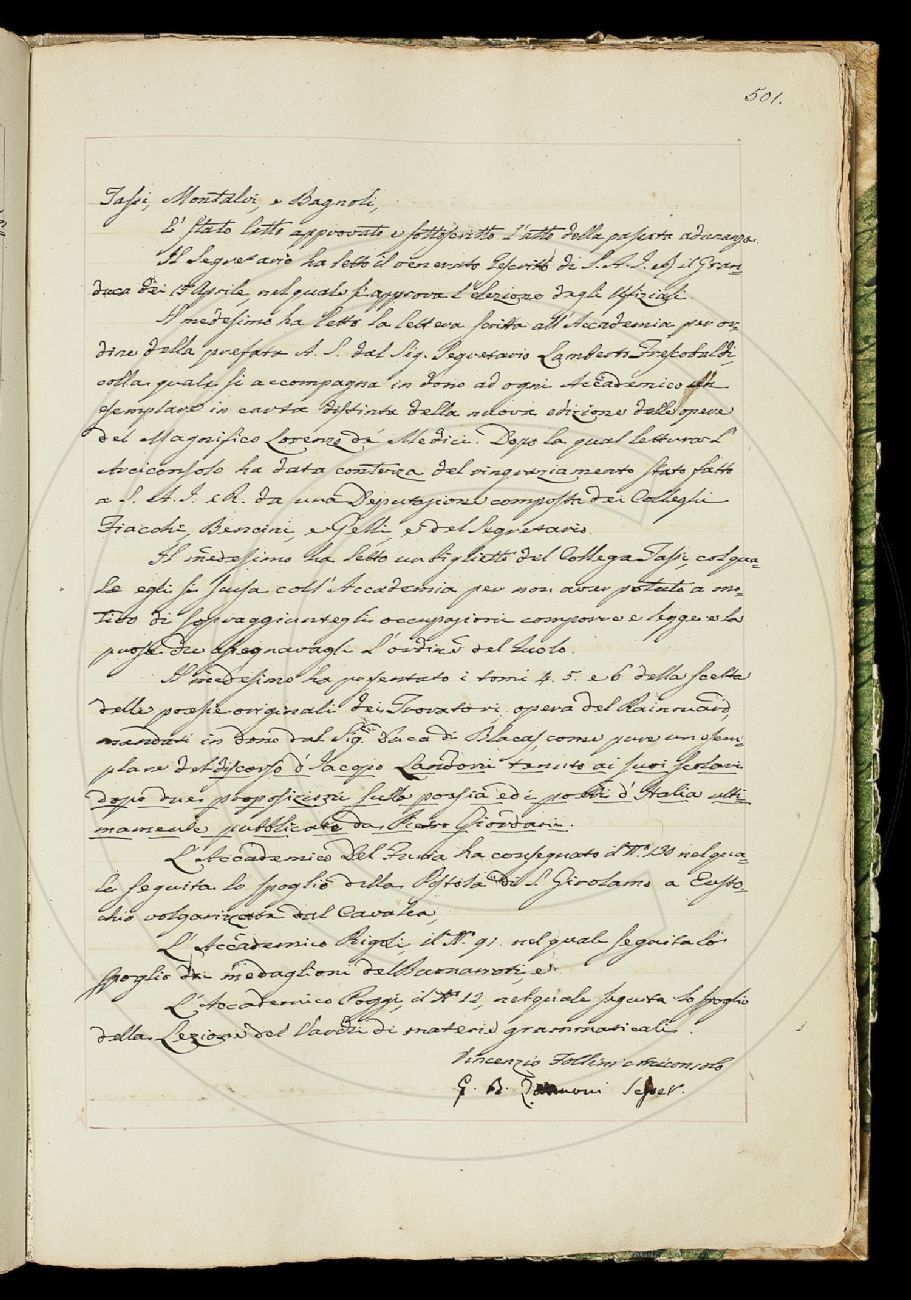 501.
Tassi, Montalvi, e Bagnoli,
E' stato letto approvato e sottoscritto l'atto della passata adunanza.
Il Segretario ha letto il venerato Rescritto di S. A. I. e R. il Gran-
duca dei 13 Aprile, nel quale si approva l'elezione degli Ufiziali.
Il medesimo ha letto la lettera scritta all'Accademia per or-
dine della prefata A. S. dal Sig. Segretario Lamberto Frescobaldi,
colla quale si accompagna in dono ad ogni Accademico un
esemplare in carta distinta della nuova edizione delle opere
del Magnifico Lorenzo de' Medici. Dopo la qual lettura l'
Arciconsolo ha data contezza del ringraziamento stato fatto
a S. A. I. e R. da una Deputazione composta dei Colleghi
Fiacchi, Bencini, e Gelli, e del Segretario
Il medesimo ha letto un biglietto del Collega Tassi, col qua-
le egli si scusa coll'Accademia per non aver potuto a mo-
tivo di sopraggiuntegli occupazioni comporre e leggere la
prosa che assegnavagli l'ordine del Ruolo.
Il medesimo ha presentato i tomi 4. 5. e 6 della scelta
delle poesie originali dei Trovatori, opera del Rainouard,
mandati in dono dal Sig. Duca di Blacas, come pure un esem-
plare del discorso d'Jacopo Landoni tenuto ai suoi scolari
dopo due proposizioni sulla poesia ed i poeti d'Italia ulti-
mamente pubblicate da Pietro Giordani.
L'Accademico Del Furia ha consegnato il N.° 130 nel qua-
le seguita lo spoglio della Pistola di S. Girolamo a Eusto-
chio volgarizzata dal Cavalca,
L'Accademico Rigoli, il N.° 91. nel quale seguita lo
spoglio dei medaglioni del Buonarroti, e
L'Accademico Poggi, il N.° 12, nel quale seguita lo spoglio
della Lezione del Varchi di materie grammaticali.
Vincenzio Follini Arciconsolo
G. B. Zannoni Segr.